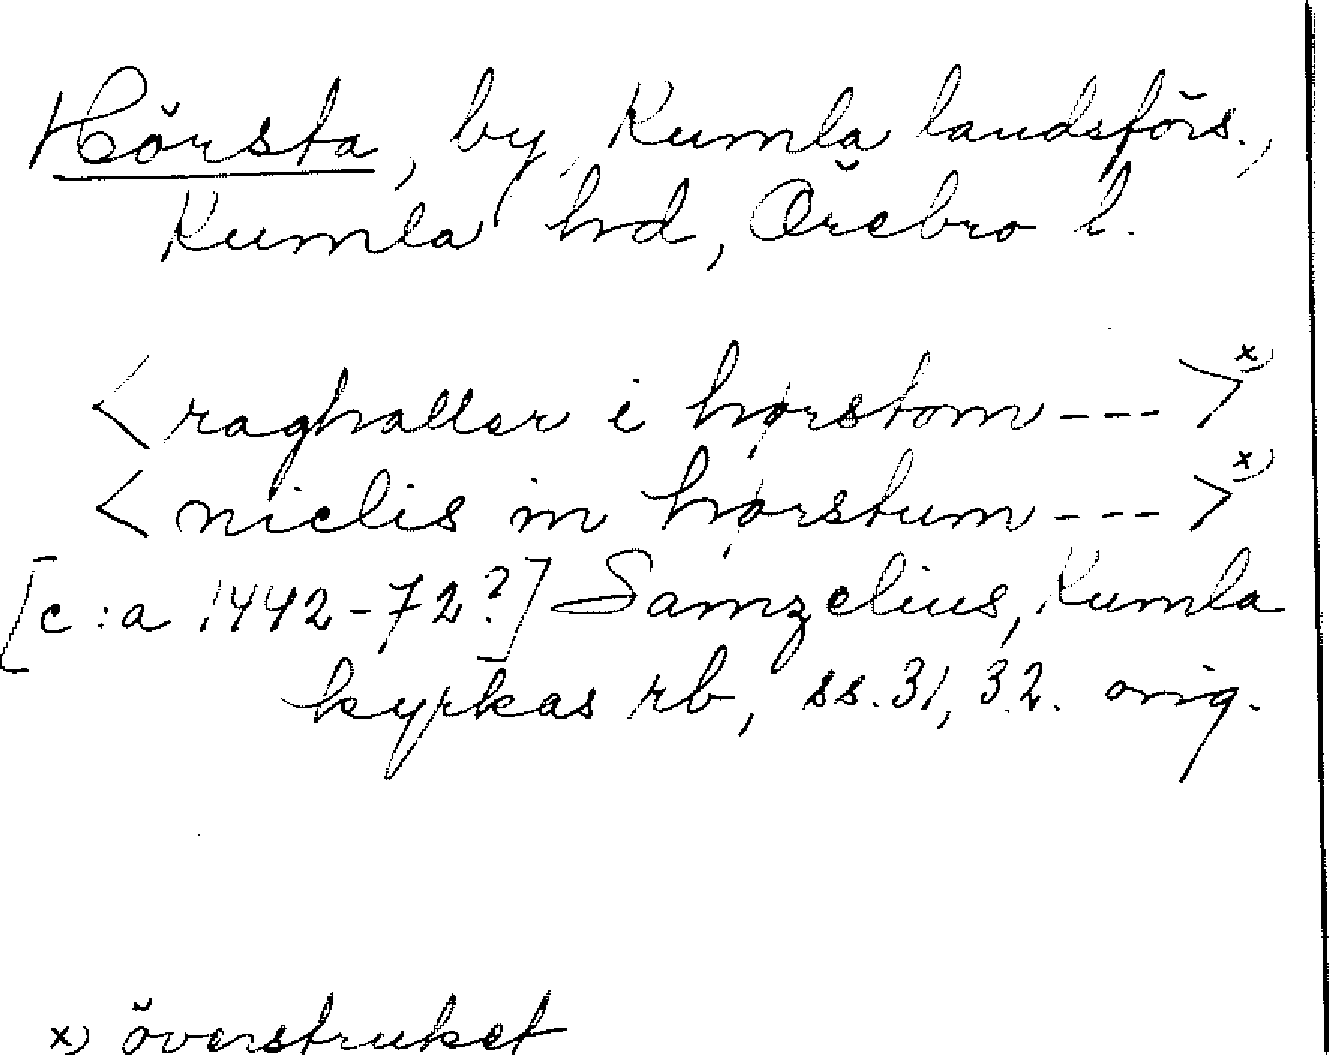 Hörsta, by, Kumla landsförs.,
Kumla hd, Örebro l.
<raghaller i hørstom--->x)
<niclis in hørstum--->x)
[c:a 1442-72?] Samzelius, Kumla
kyrkas rb, ss. 31, 32. orig.
x) överstruket